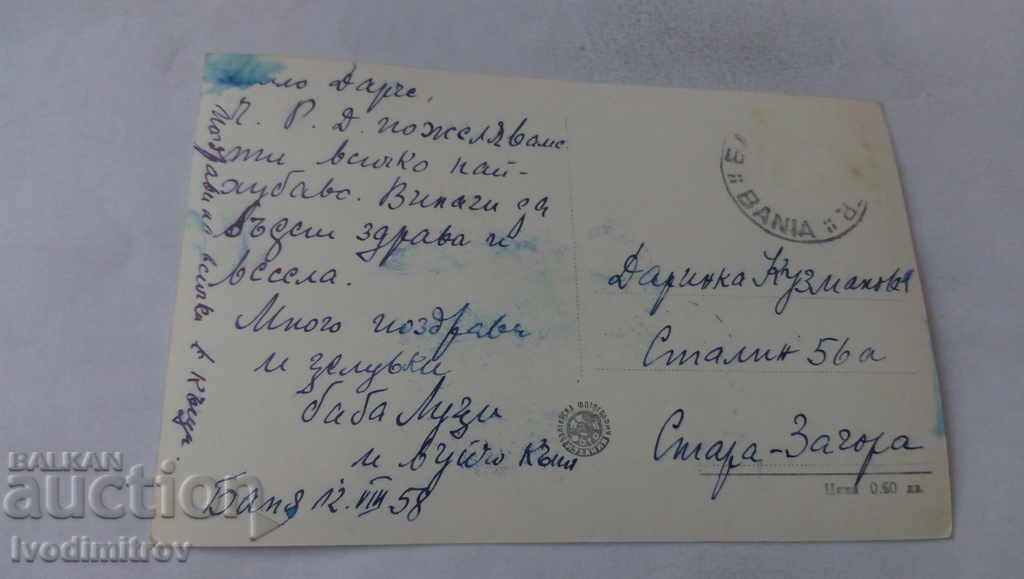 Дарче,
Ч. Р. Д. пожелявам
ти всичко най-
хубаво. Винаги да
бъдеш здрава и
весела.
Много поздрави
и целувки
баба Луци
и вуйчо
Баня 12. VIII 58
всички в къщи.
BANIA
Даринка Кузманова
Сталин 56а
Стара-Загора
Цена 0.60 лв.
BALKAN
auction
Ivodimitrov